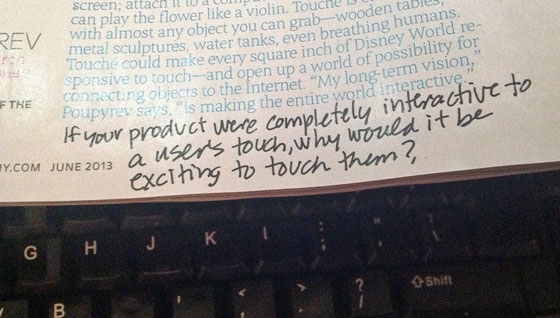 screen; attach it to a
can play the flower like a violin. Touché is
with almost any object you can grab—wooden tables,
metal sculptures, water tanks, even breathing humans.
Touché could make every square inch of Disney World re-
sponsive to touch—and open up a world of possibility for
connecting objects to the Internet. “My long-term vision,”
Poupyrev says, “is making the entire world interactive.”
REV
F THE
Y.COM JUNE 2013
If your product were completely interactive to
a user's touch, why would it be
exciting to touch them?
G H J K L : ; " '
B < > ? / Shift